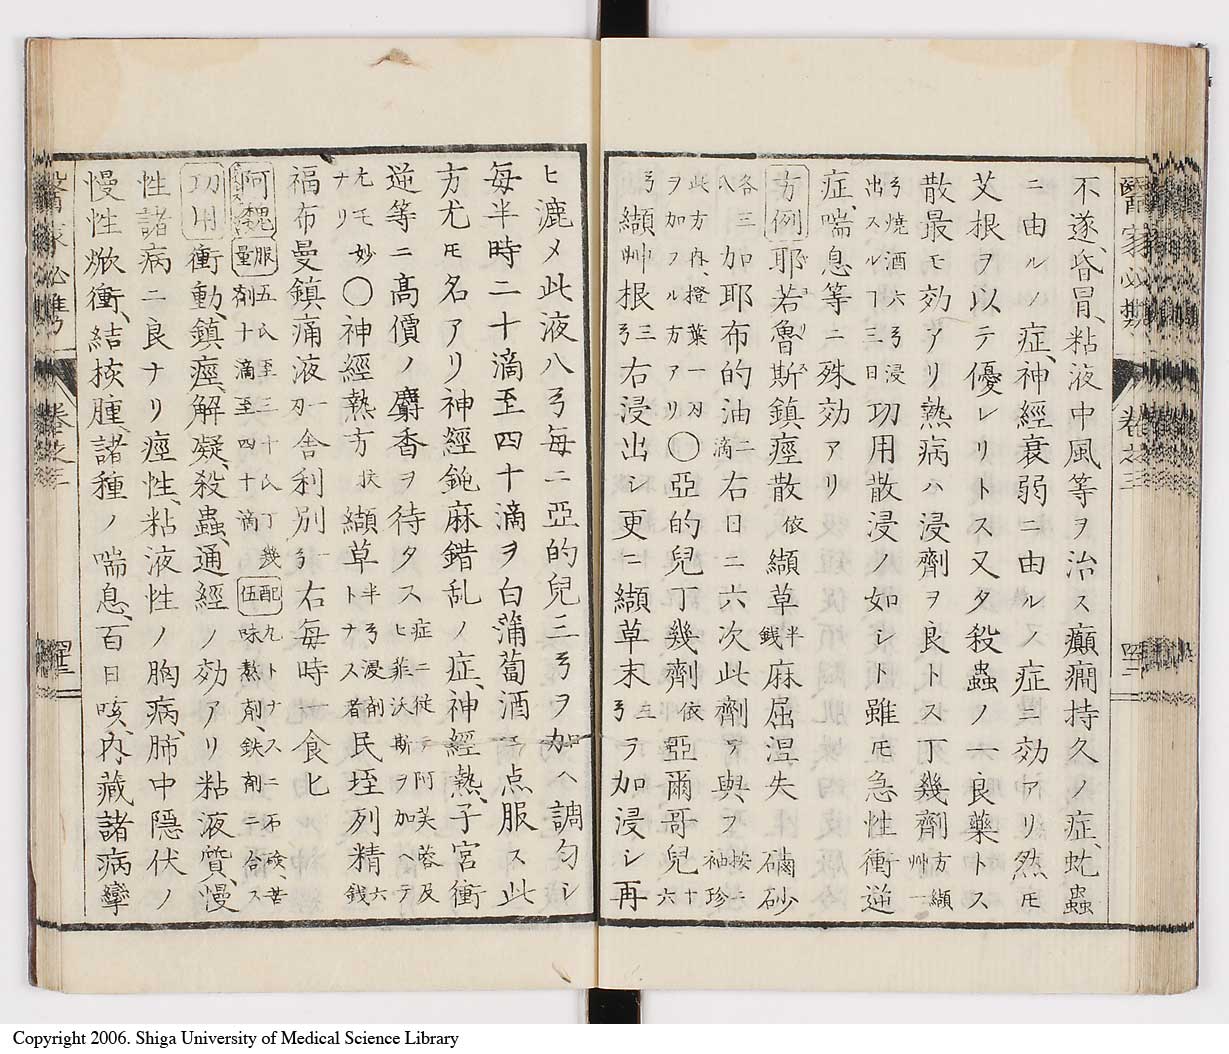 不遂、昏冒、粘液中風等ヲ治ス癲癇持久ノ症、虻蟲
ニ由ルノ症、神經衰弱ニ由ルノ症ニ効アリ然モ
艾根ヲ以テ優レリトス又タ殺蟲ノ一良藥トス
散最モ効アリ熱病ハ浸劑ヲ良トス丁幾劑方纈艸一
ℨ燒酒六ℨ浸出スルヿ三日功用散浸ノ如シト雖モ急性衝逆
症、喘息等ニ殊効アリ
方例耶若魯斯鎮痙散依纈草半錢麻屈涅失磠砂
各三八加耶布的油二滴右日ニ六次此劑ヲ與フ按ニ袖珍
此方内、橙葉一刃ヲ加フル方アリ〇亞的兒丁幾劑依亞爾哥兒十六
ℨ纈艸根三ℨ右浸出シ更ニ纈草末三ℨヲ加浸シ再
ヒ漉メ此液八ℨ每ニ亞的兒三ℨヲ加ヘ調匀シ
每半時二十滴至四十滴ヲ白葡萄酒ニ点服ス此
方尤モ名アリ神經鈍麻錯乱ノ症、神經熱、子宮衝
逆等ニ高價ノ麝香ヲ待タス症ニ従テ阿芙蓉及ヒ菲沃斯ヲ加ヘテ
尤モ妙ナリ〇神經熱方扶纈草半ℨ浸劑トナス者民垤列精六錢
福布曼鎮痛液一刃舎利別一ℨ右每時一食匕
阿魏服量五氏至三十氏丁幾劑十滴至四十滴配伍丸トナスニ不殕、苦味熬劑、鉄劑ニ合ス
功用衝動、鎮痙、解凝、殺蟲、通經ノ効アリ粘液質、慢
性諸病ニ良ナリ痙性、粘液性ノ胸病、肺中隠伏ノ
慢性焮衝、結核腫、諸種ノ喘息、百日咳、内藏諸病攣
醫家必携
卷之三
Copyright 2006. Shiga University of Medical Science Library